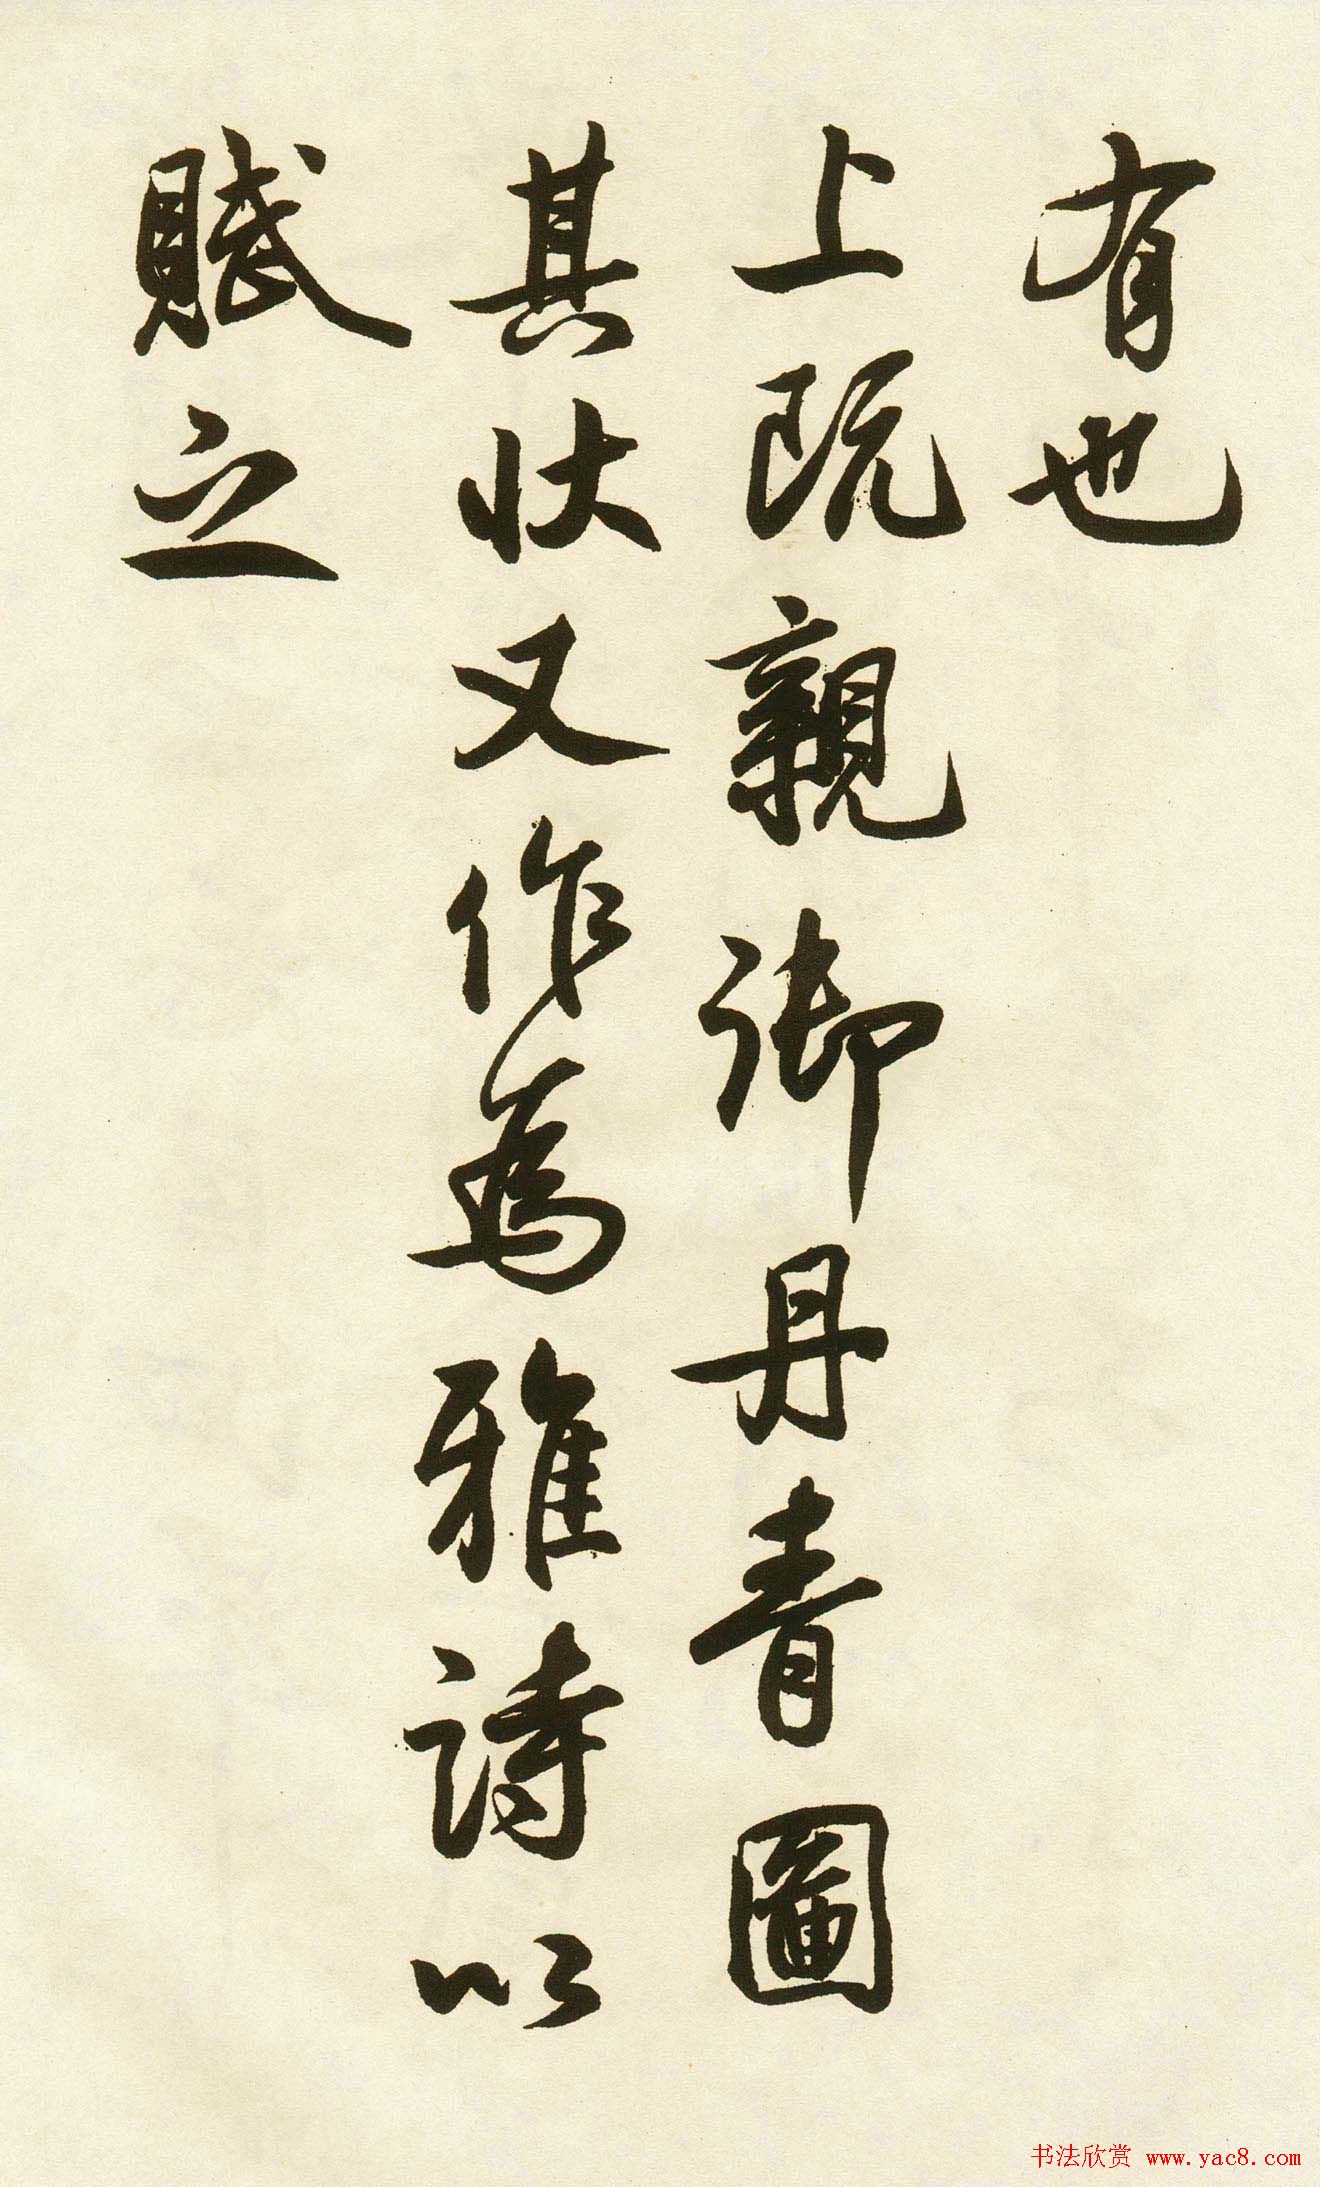 有也
上既親御丹青圖
其狀又作為雅詩以
賦之
书法欣赏 www.yac8.com